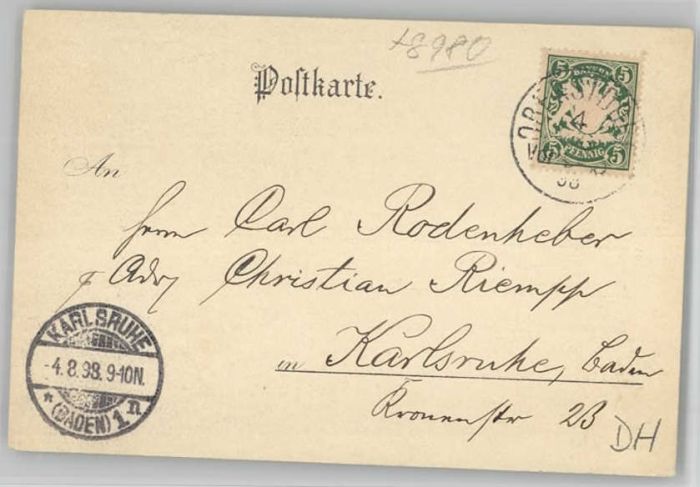 +8980
Postkarte.
5 BAYERN 5
5 PFENNIG 5
4
98
An
Herrn Carl Rodenheber
p Adr Christian Riempp
in Karlsruhe, Baden
Kronenstr 23
KARLSRUHE
-4.8.98.9-10N.
* (BADEN) 1n
DH